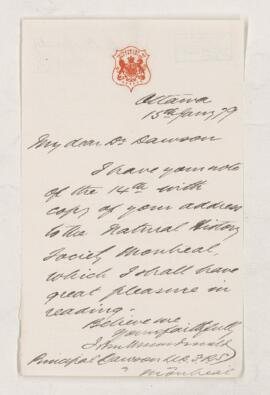 Ottawa
15th Jany 79
My dear Dr Dawson
I have your note
of the 14th with
copy of your address
to the Natural History
Society Montreal,
which I shall have
great pleasure in
reading.
Believe me
Yours faithfully
Principal Dawson LLD FRS
Montreal